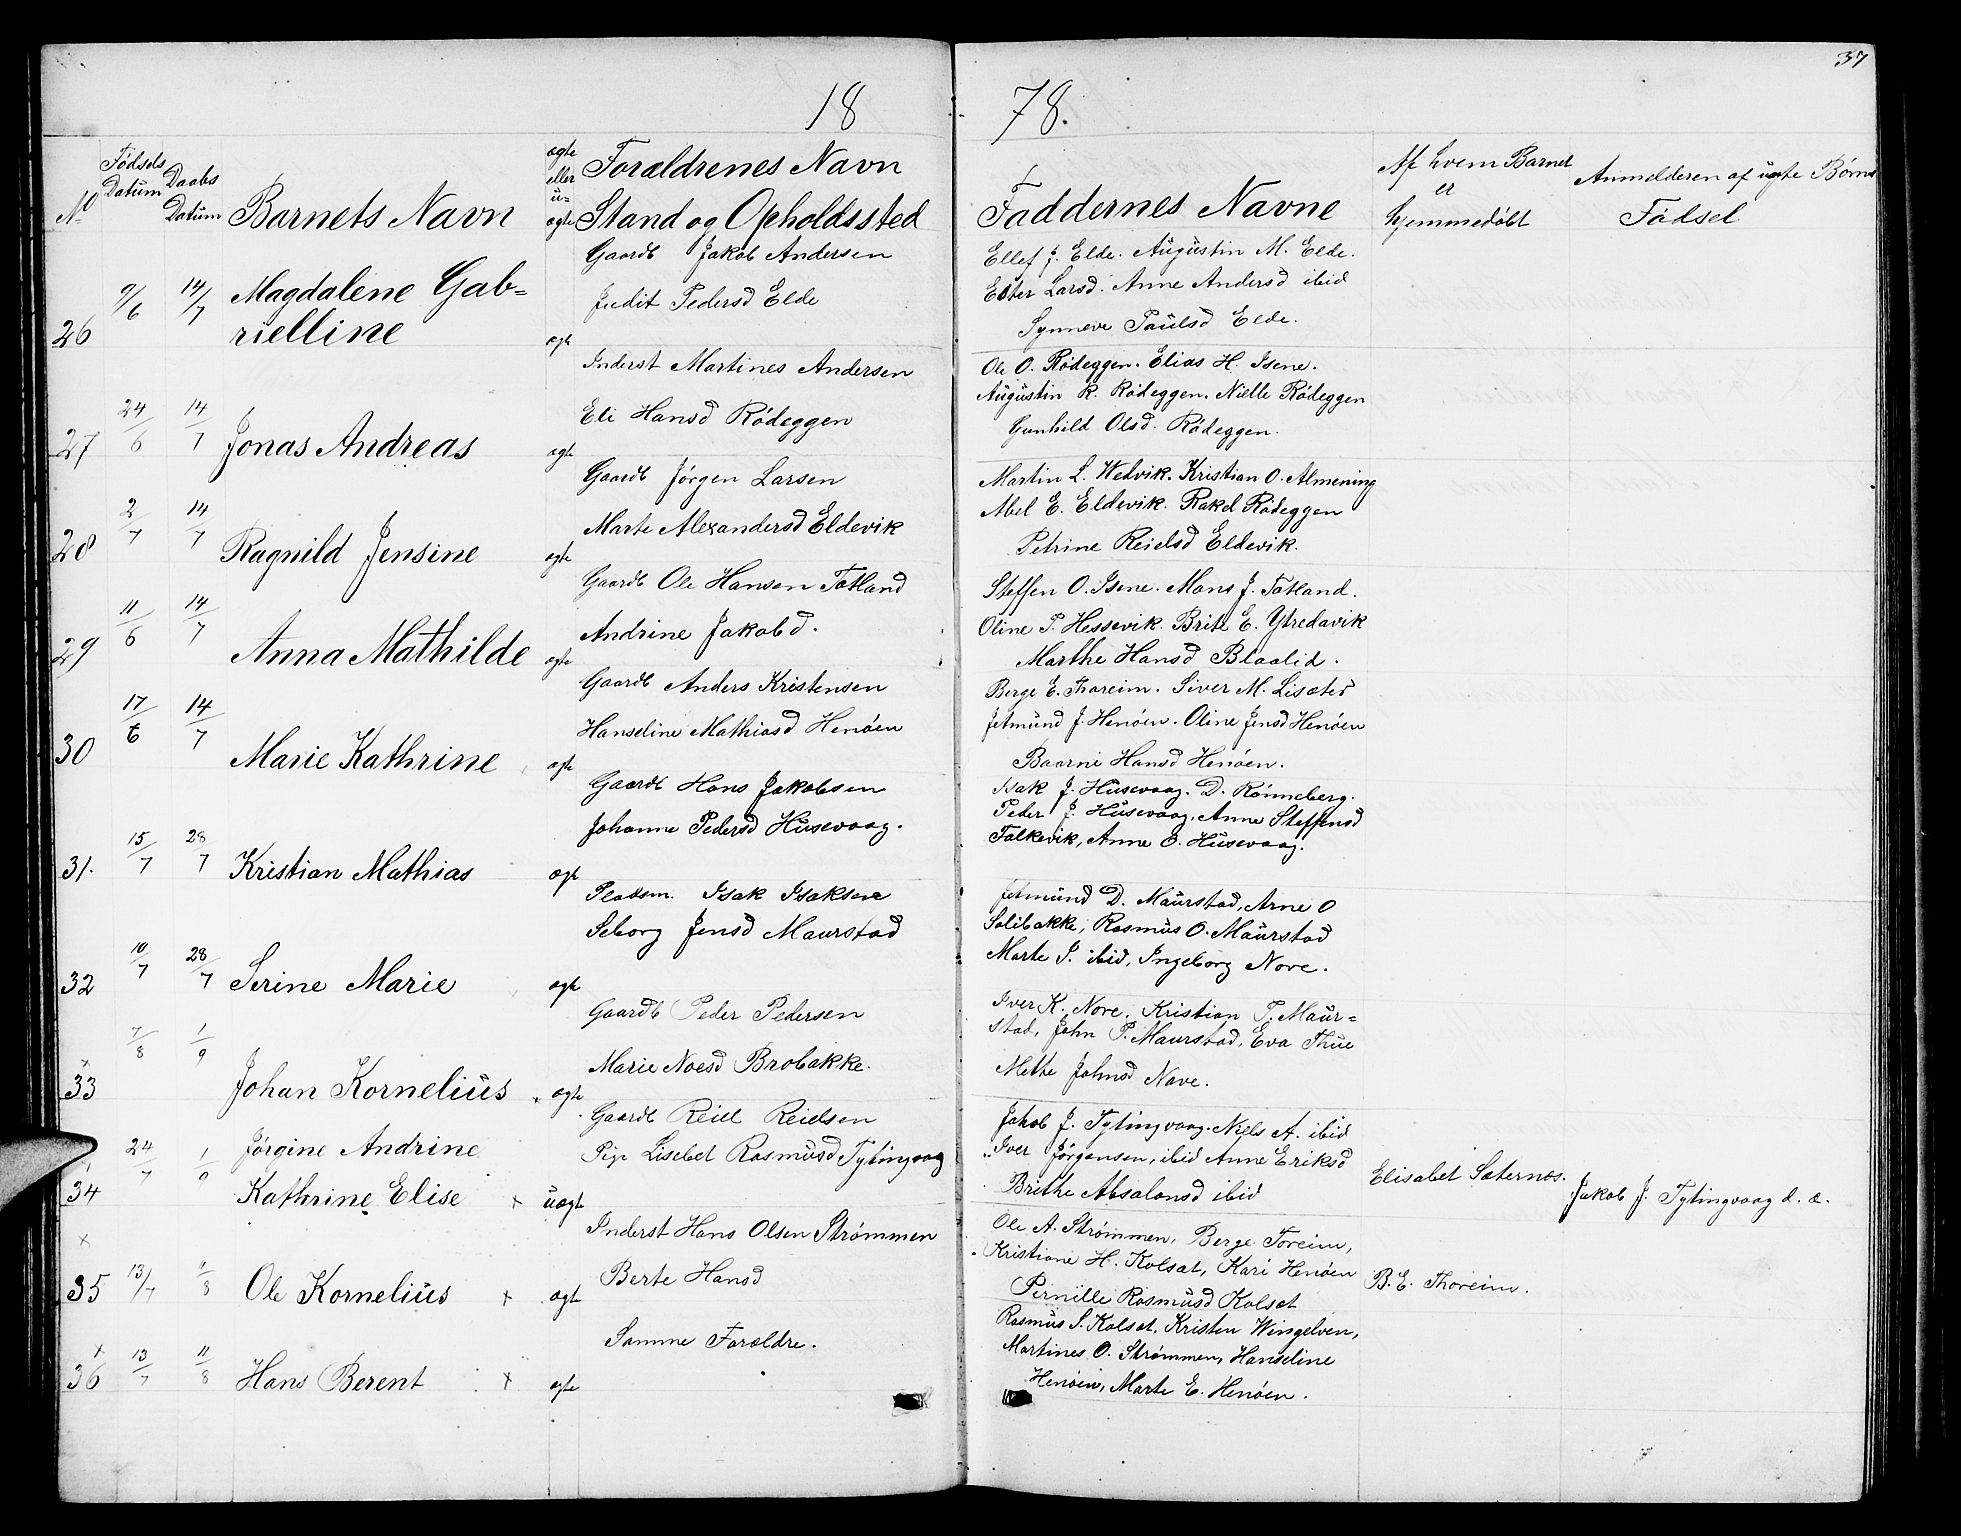 37
18 78.
No
Fødsels Datum
Daabs Datum
Barnets Navn
ægte eller u= ægte
Forældrenes Navn
Stand og Opholdssted
Faddernes Navne
Af hvem Barnet er hjemmedøbt
Anmelderen af uægte Børns Fødsel
26
9/6
14/7
Magdalene Gab=
rielline
ægte
Gaardb Jakob Andersen
Judit Pedersd Elde
Ellef J. Elde. Augustin M. Elde.
Ester Larsd. Anne Andersd ibid
Synneve Paulsd Elde.
27
24/6
14/7
Jonas Andreas
ægte
Inderst Martines Andersen
Eli Hansd Rödeggen
Ole O. Rödeggen. Elias H. Isene.
Augustin R. Rödeggen. Nielle Rödeggen
Gunhild Olsd. Rödeggen.
28
2/7
14/7
Ragnild Jensine
ægte
Gaardb Jörgen Larsen
Marte Alexandersd Eldevik
Martin L. Wedvik. Kristian O. Almening
Abel E. Eldevik. Rakel Rödeggen
Petrine Reielsd Eldevik.
29
11/6
14/7
Anna Mathilde
ægte
Gaardb Ole Hansen Totland
Andrine Jakobd.
Steffen O. Isene. Mons J. Totland.
Oline P. Hessevik. Brite E. Ytredavik
Marthe Hansd Blaalid.
30
17/6
14/7
Marie Kathrine
ægte
Gaardb Anders Kristensen
Hanseline Mathiasd Henöen
Berge E. Thoreim. Siver M. Lisæter
Jetmund J. Henöen. Oline Jensd Henöen
Baarni Hansd Henöen.
31.
15/7
28/7
Kristian Mathias
ægte
Gaardb Hans Jakobsen
Johanne Pedersd Husevaag.
Isak J. Husevaag. D. Rönneberg.
Peder J. Husevaag, Anne Steffensd
Falkevik, Anne O. Husevaag.
32
10/7
28/7
Serine Marie
ægte
Pladsm. Isak Isaksen
Seborg Jensd Maurstad
Jetmund D. Maurstad, Arne O
Solibakke, Rasmus O. Maurstad
Marte I. ibid, Ingeborg Nore.
x
33
7/8
1/9
Johan Kornelius
ægte
Gaardb Peder Pedersen
Marie Noesd Brobakke.
Iver K. Nore, Kristian P. Maur=
stad, John P. Maurstad, Eva Thue
Methe Johnsd Nave.
34
24/7
1/9
Jørgine Andrine
Kathrine Elise x
uægte
Gaardb Reiel Reielsen
Pige Lisebet Rasmusd Tytingvaag
Jakob J. Tytingvaag. Niels A. ibid
Iver Jörgensen, ibid Anne Eriksd
Brithe Absalonsd ibid
Elisabet Sæternæs.
Jakob J. Tytingvaag d. æ.
x
35
13/7
11/8
Ole Kornelius x
ægte
Inderst Hans Olsen Strømmen
Berte Hansd
Ole A. Strømmen, Berge Toreim,
Kristiane H. Kolset, Kari Henöen
Pernille Rasmusd Kolset
B. E. Thoreim.
x
36
13/7
11/8
Hans Berent x
ægte
Samme Forældre.
Rasmus S. Kolset, Kristen Wingelven,
Martines O. Strømmen, Hanseline
Henöen, Marte E. Henöen.